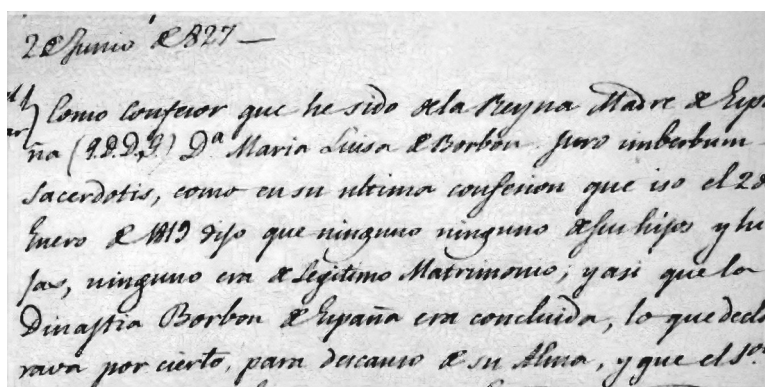 2 de Junio de 1827 —
Como Confesor que he sido dela Reyna Madre de Espa
ña (q.D.D.g.) Dª Maria Luisa de Borbon. Juro imberbum
Sacerdotis, como en su ultima confesion que iso el 2 de
Enero de 1819 dijo que ninguno ninguno desus hijos y hi
jas, ninguno era de legitimo Matrimonio; y asi que la
Dinastia Borbon de España era concluida, lo que decla
rava por cierto, para descanso de su Alma, y que el Sor.